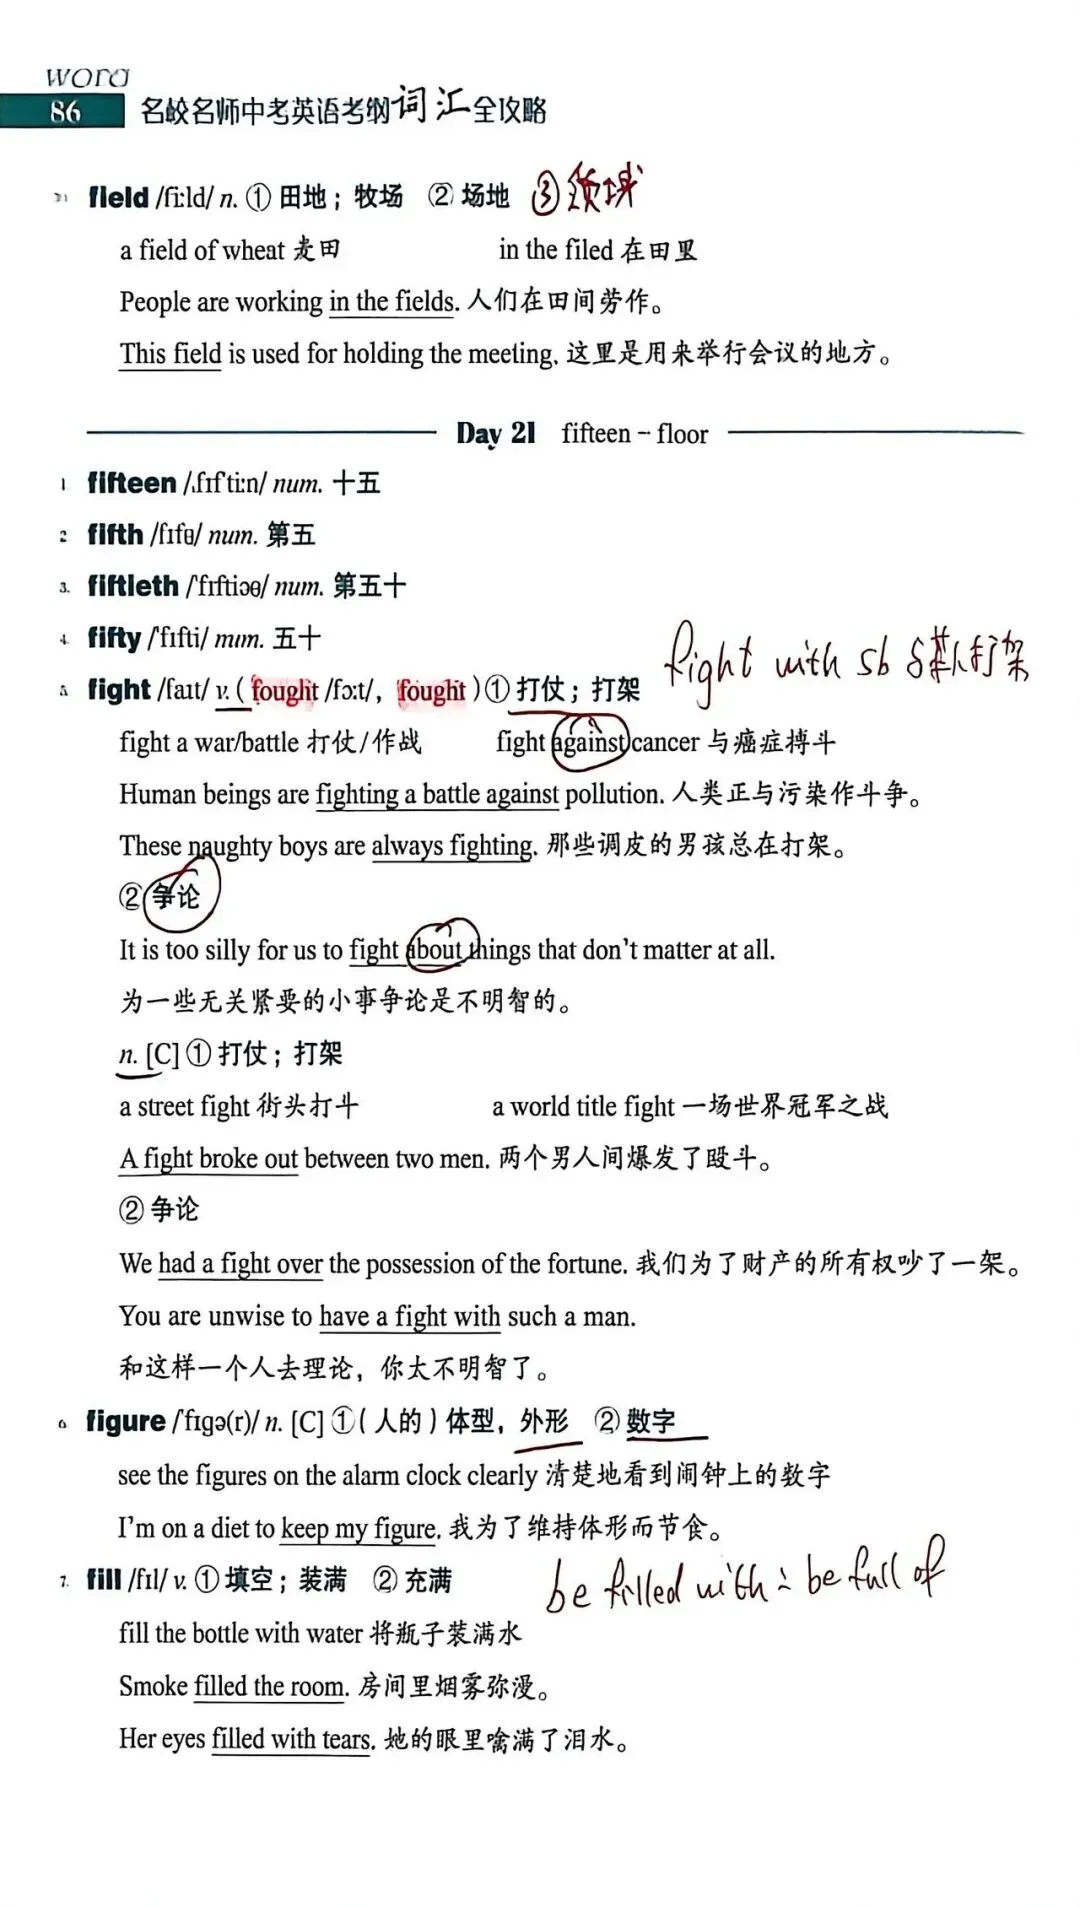 word
86 名校名师中考英语考纲词汇全攻略
field /fiːld/ n. ① 田地；牧场 ② 场地 ③领域
a field of wheat 麦田 in the filed 在田里
People are working in the fields. 人们在田间劳作。
This field is used for holding the meeting. 这里是用来举行会议的地方。
Day 21 fifteen – floor
1. fifteen /ˌfɪfˈtiːn/ num. 十五
2. fifth /fɪfθ/ num. 第五
3. fiftieth /ˈfɪftiəθ/ num. 第五十
4. fifty /ˈfɪfti/ num. 五十
fight with sb 与某人打架
5. fight /faɪt/ v. ( fought /fɔːt/, fought ) ① 打仗；打架
fight a war/battle 打仗/作战 fight against cancer 与癌症搏斗
Human beings are fighting a battle against pollution. 人类正与污染作斗争。
These naughty boys are always fighting. 那些调皮的男孩总在打架。
② 争论
It is too silly for us to fight about things that don't matter at all.
为一些无关紧要的小事争论是不明智的。
n. [C] ① 打仗；打架
a street fight 街头打斗 a world title fight 一场世界冠军之战
A fight broke out between two men. 两个男人间爆发了殴斗。
② 争论
We had a fight over the possession of the fortune. 我们为了财产的所有权吵了一架。
You are unwise to have a fight with such a man.
和这样一个人去理论，你太不明智了。
6. figure /ˈfɪgə(r)/ n. [C] ①（人的）体型，外形 ② 数字
see the figures on the alarm clock clearly 清楚地看到闹钟上的数字
I'm on a diet to keep my figure. 我为了维持体形而节食。
7. fill /fɪl/ v. ① 填空；装满 ② 充满 be filled with = be full of
fill the bottle with water 将瓶子装满水
Smoke filled the room. 房间里烟雾弥漫。
Her eyes filled with tears. 她的眼里噙满了泪水。